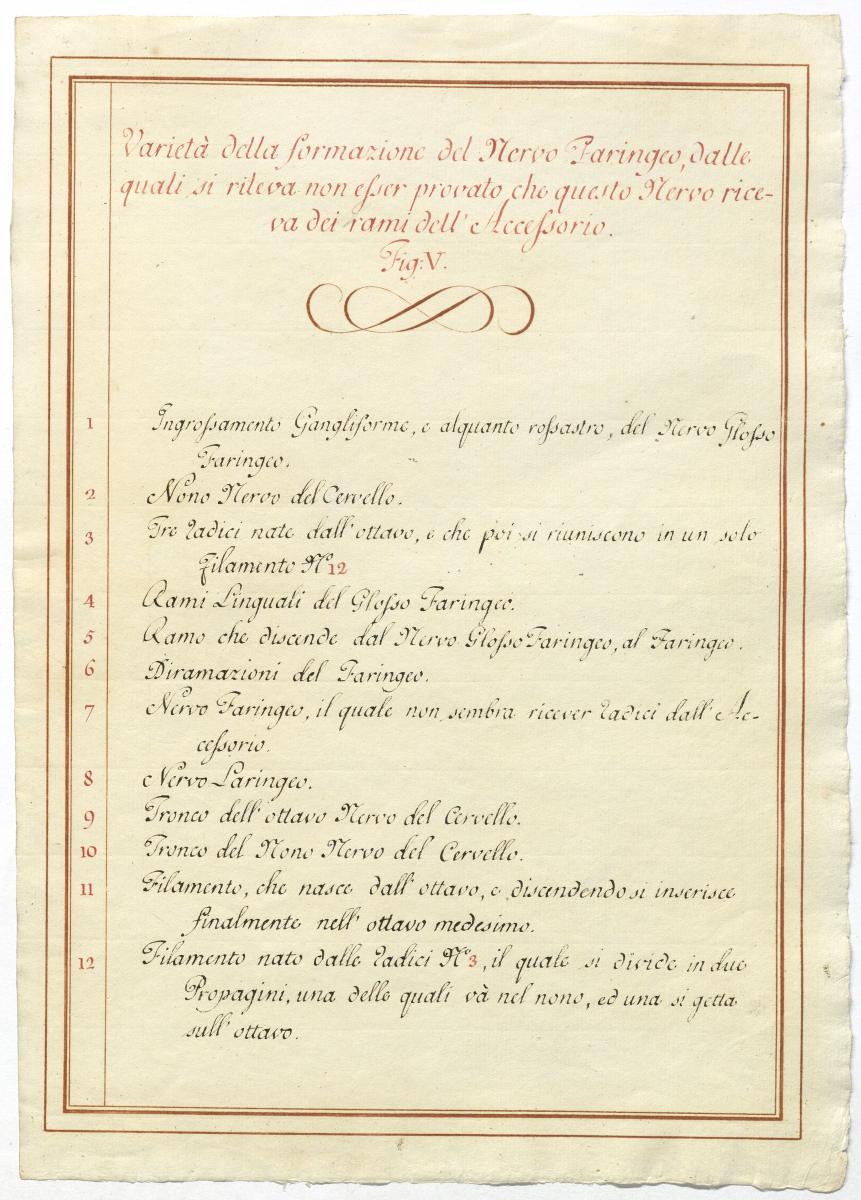 Varietà della formazione del Nervo Faringeo, dalle
quali si rileva non esser provato che questo Nervo rice-
va dei rami dell' Accessorio.
Fig: V.
1 Ingrossamento Gangliforme, e alquanto rossastro, del Nervo Glosso
Faringeo.
2 Nono Nervo del Cervello.
3 Tre radici nate dall' ottavo, e che poi si riuniscono in un solo
filamento N.º 12
4 Rami Linguali del Glosso Faringeo.
5 Ramo che discende dal Nervo Glosso Faringeo, al Faringeo.
6 Diramazioni del Faringeo.
7 Nervo Faringeo, il quale non sembra ricever radici dall' Ac-
cessorio.
8 Nervo Laringeo.
9 Tronco dell' ottavo Nervo del Cervello.
10 Tronco del Nono Nervo del Cervello.
11 Filamento, che nasce dall' ottavo, e discendendo si inserisce
finalmente nell' ottavo medesimo.
12 Filamento nato dalle radici N.º 3, il quale si divide in due
Propagini, una delle quali và nel nono, ed una si getta
sull' ottavo.